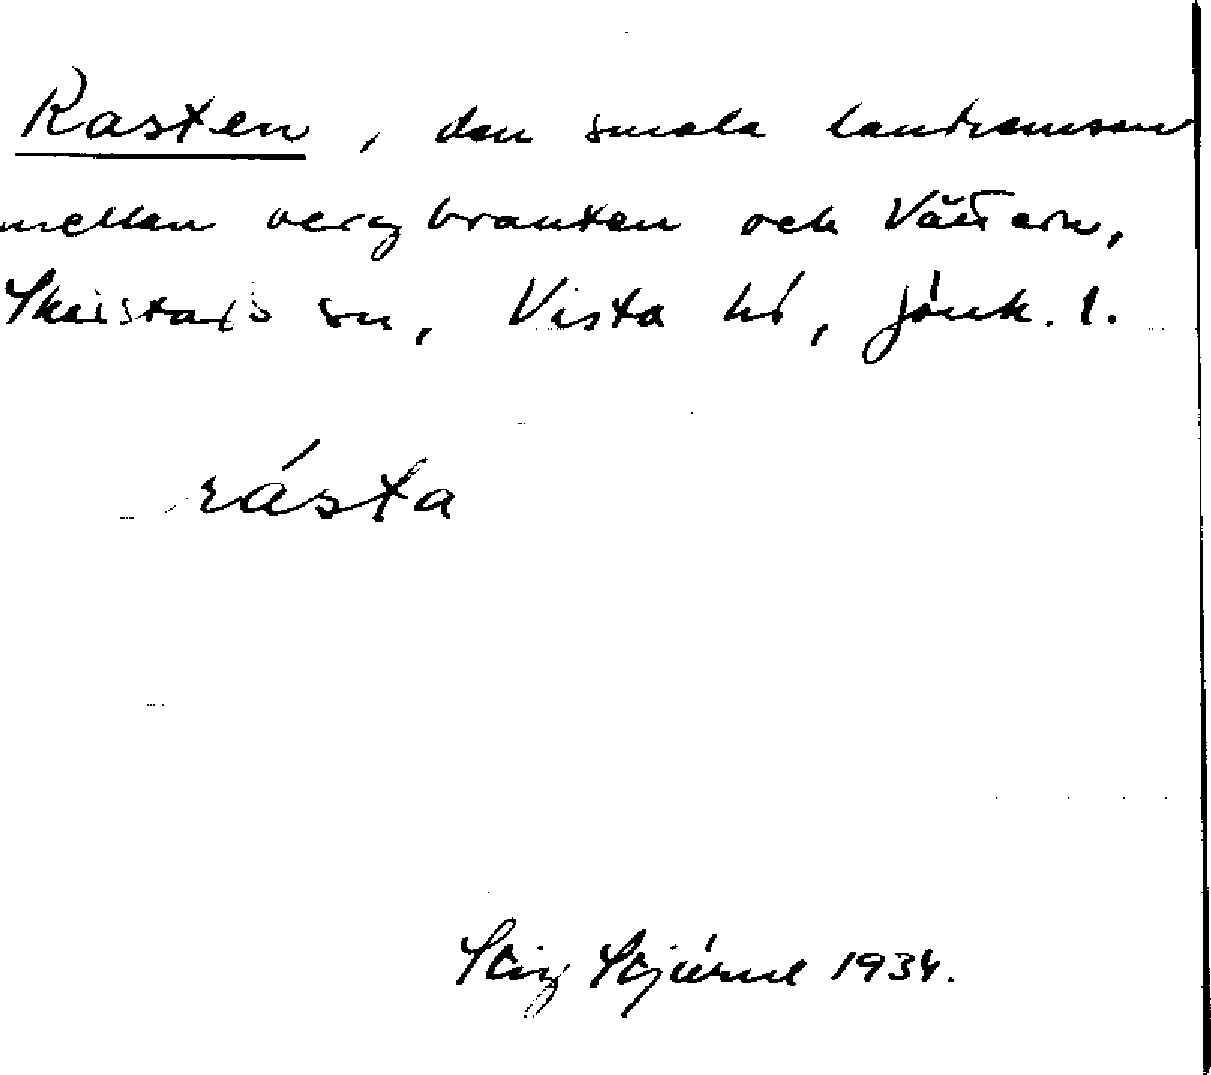 Rasten, den smala landremsan
mellan bergbranten och Vättern,
Skärstads sn, Vista hd, Jönk. l.
rásta
Stig Stjärne 1934.